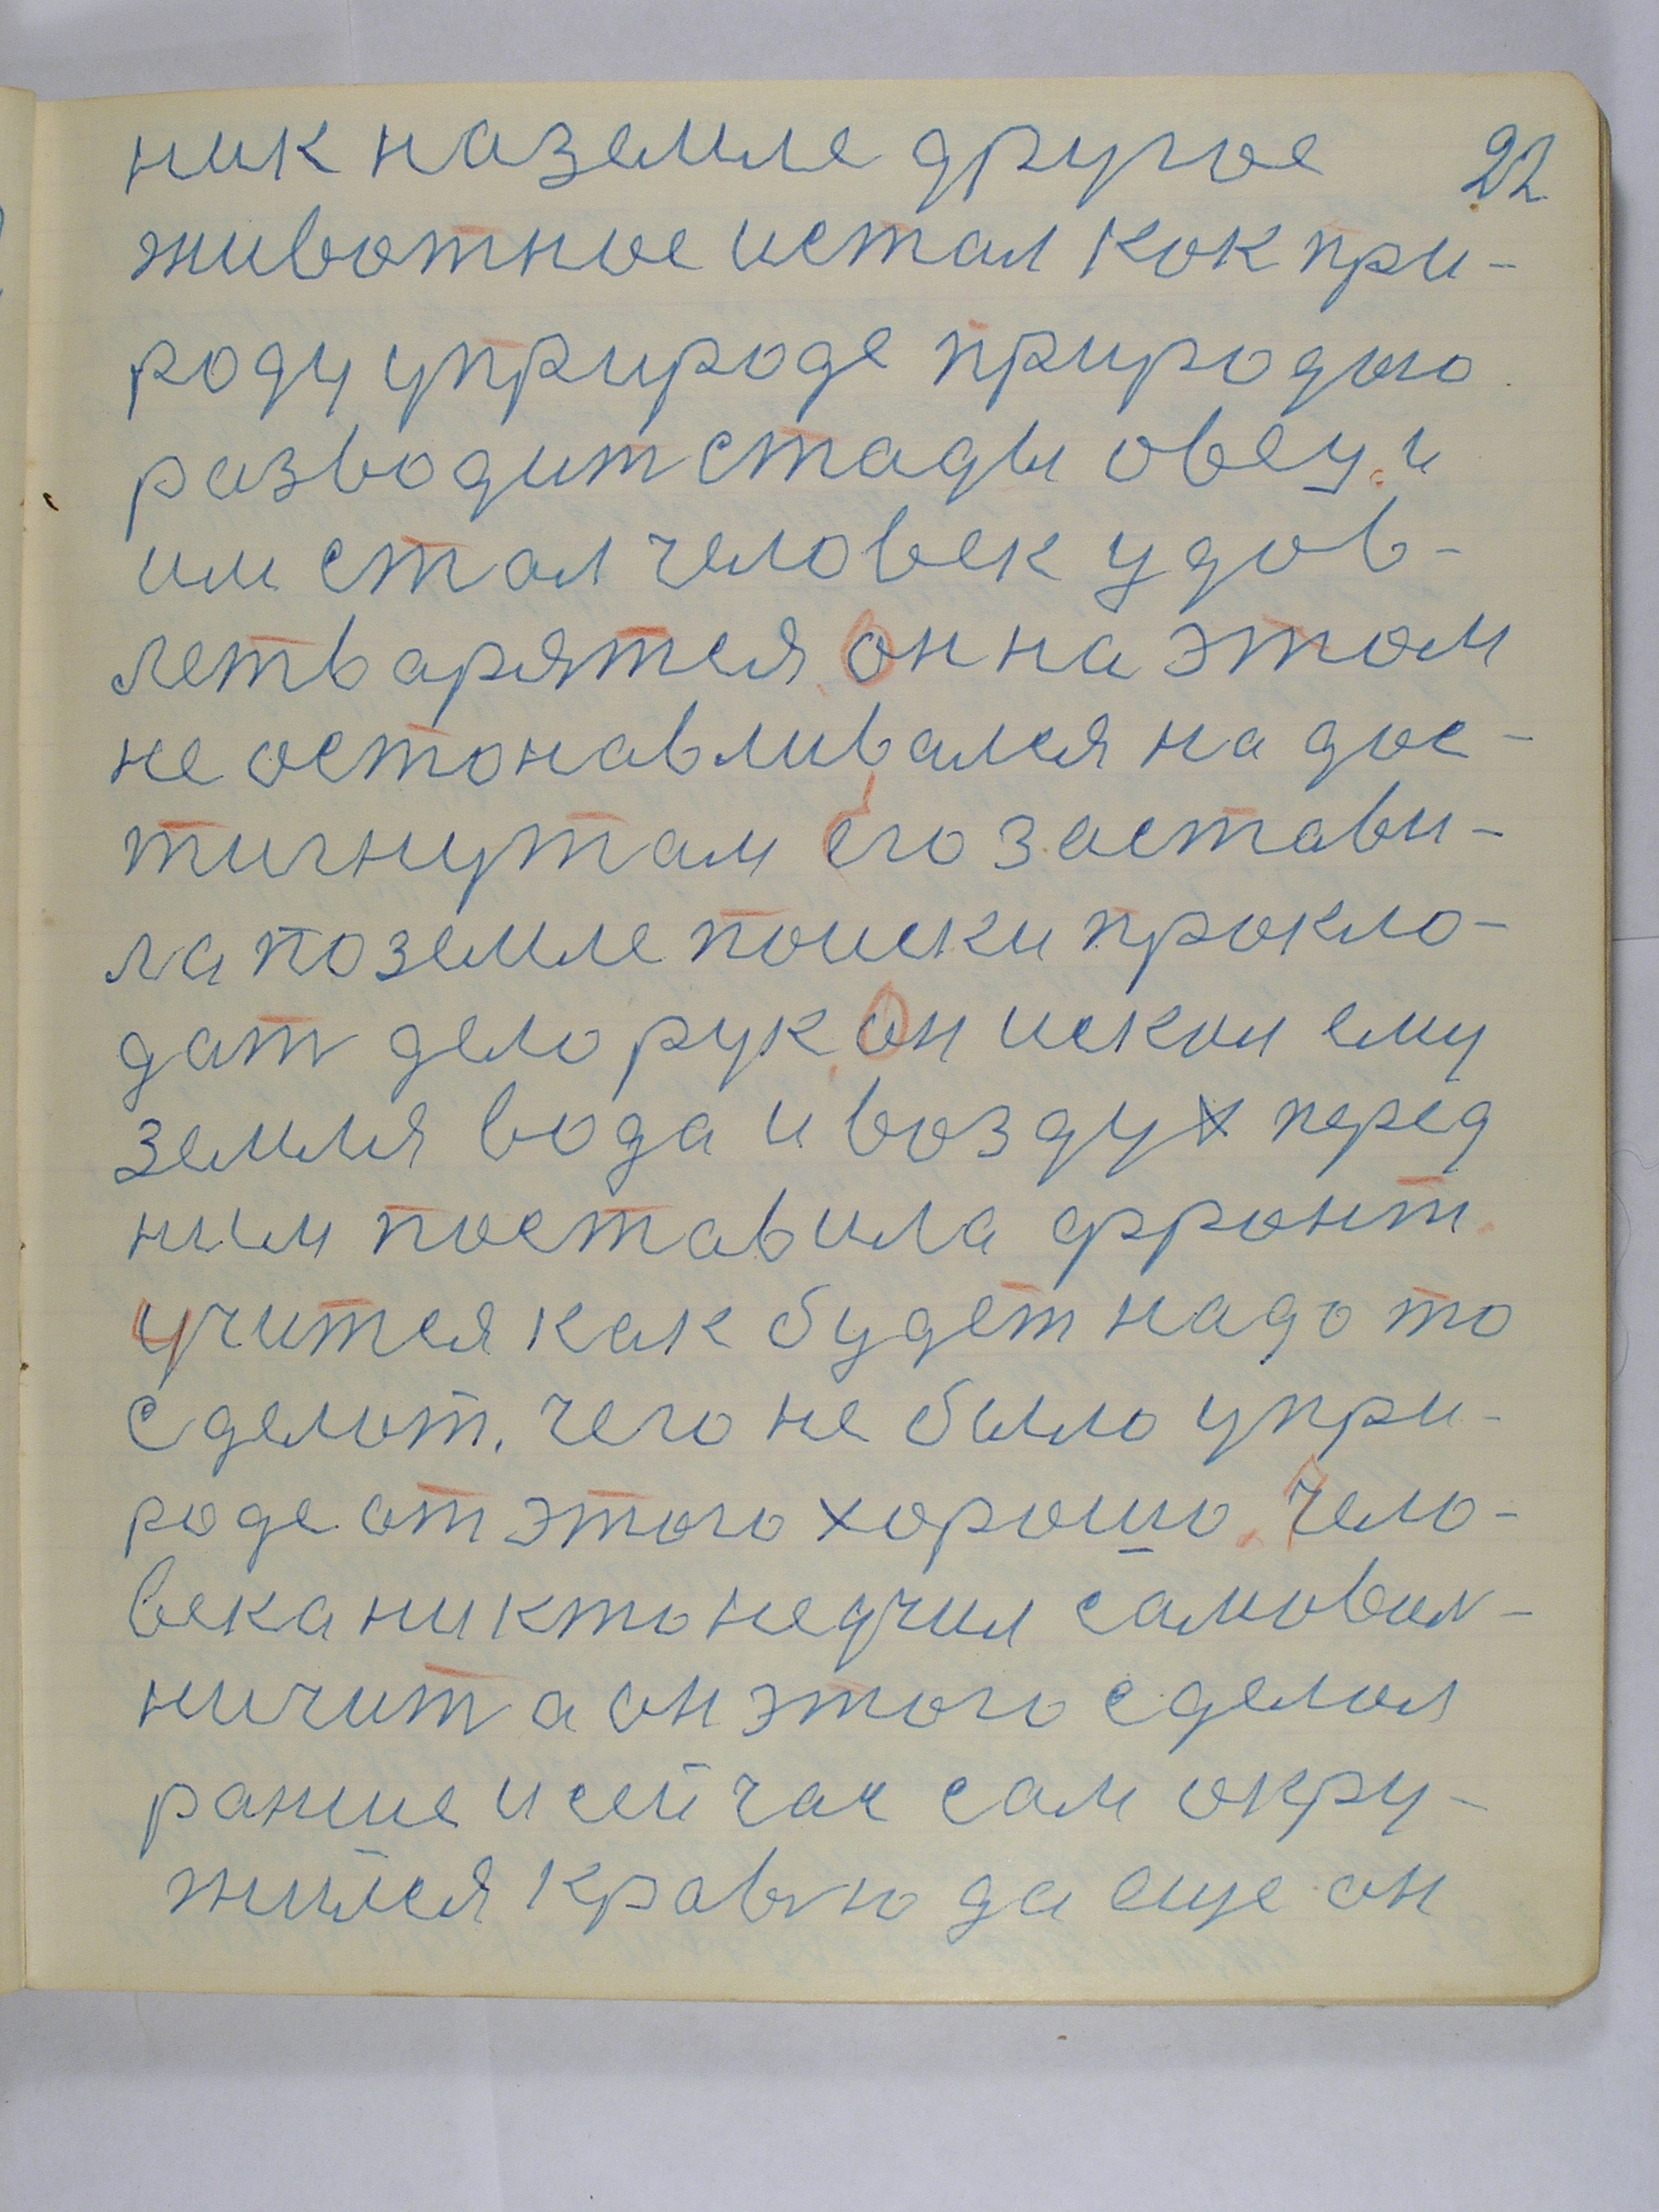 ник наземле другое 22
животное истал как при-
роду уприроде природаю
разводит стады овец. и
им стал человек удов-
летварятся. он на этом
не останавливался на дос-
тигнутам его застави-
ла поземле поиски прокло-
дат дело рук. он искал ему
земля вода и воздух перед
ним поставила фронт.
учится как будет надо то
сделат. чего не было упри-
роде от этого хорошо. Чело-
века никто неучил самовол-
ничит а он этого сделал
ранше исейчас сам окру-
жился кравю да еще он